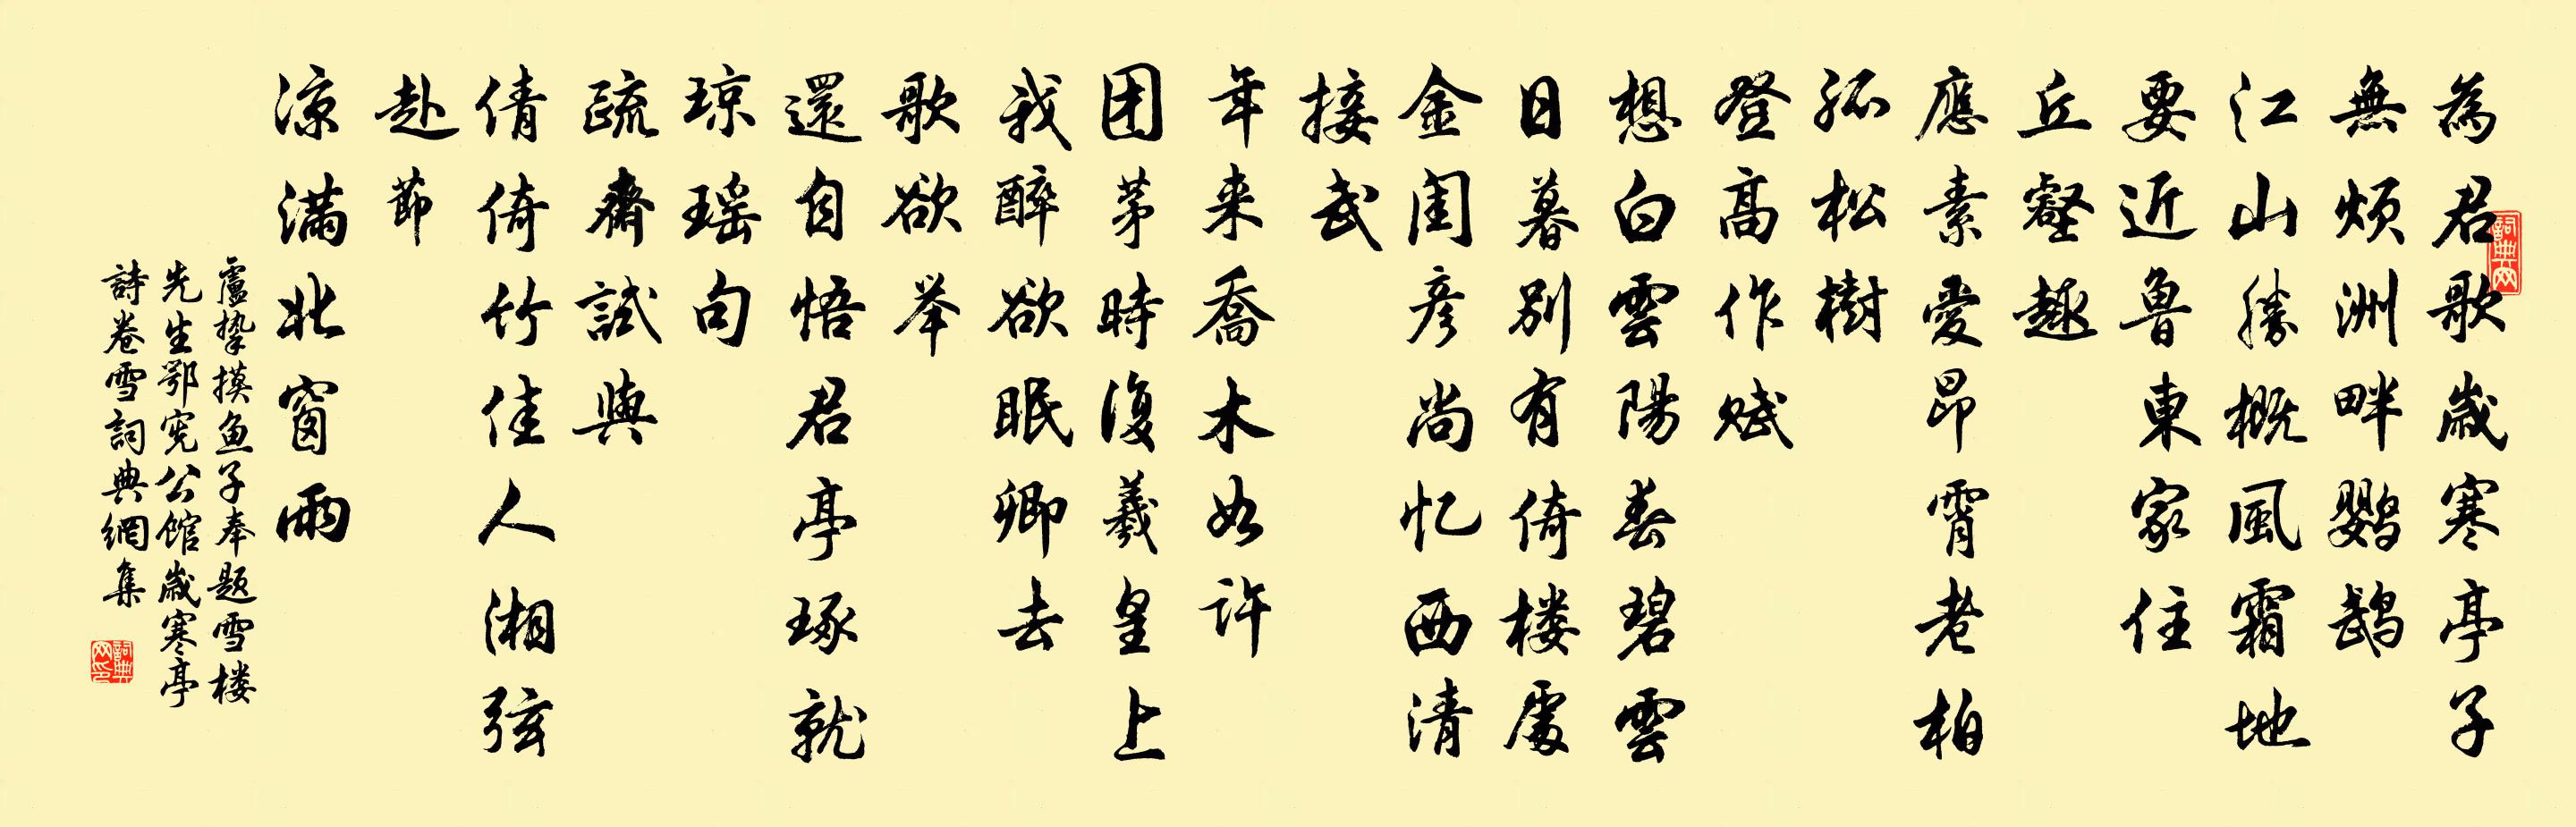 為君歌歲寒亭子
無煩洲畔鸚鵡
江山勝概風霜地
要近魯東家住
丘壑趣
應素愛昂霄老柏
孤松樹
登高作賦
想白雲陽春碧雲
日暮別有倚楼處
金閨彦尚忆西清
接武
年来喬木如许
团茅時復羲皇上
我醉欲眠卿去
歌欲举
還自悟君亭琢就
琼瑶句
疏齋試與
倩倚竹佳人湘弦
赴節
凉满北窗雨
盧挚摸鱼子奉题雪楼
先生鄂宪公馆歲寒亭
詩卷雪詞典網集
詞典网
詞典网印